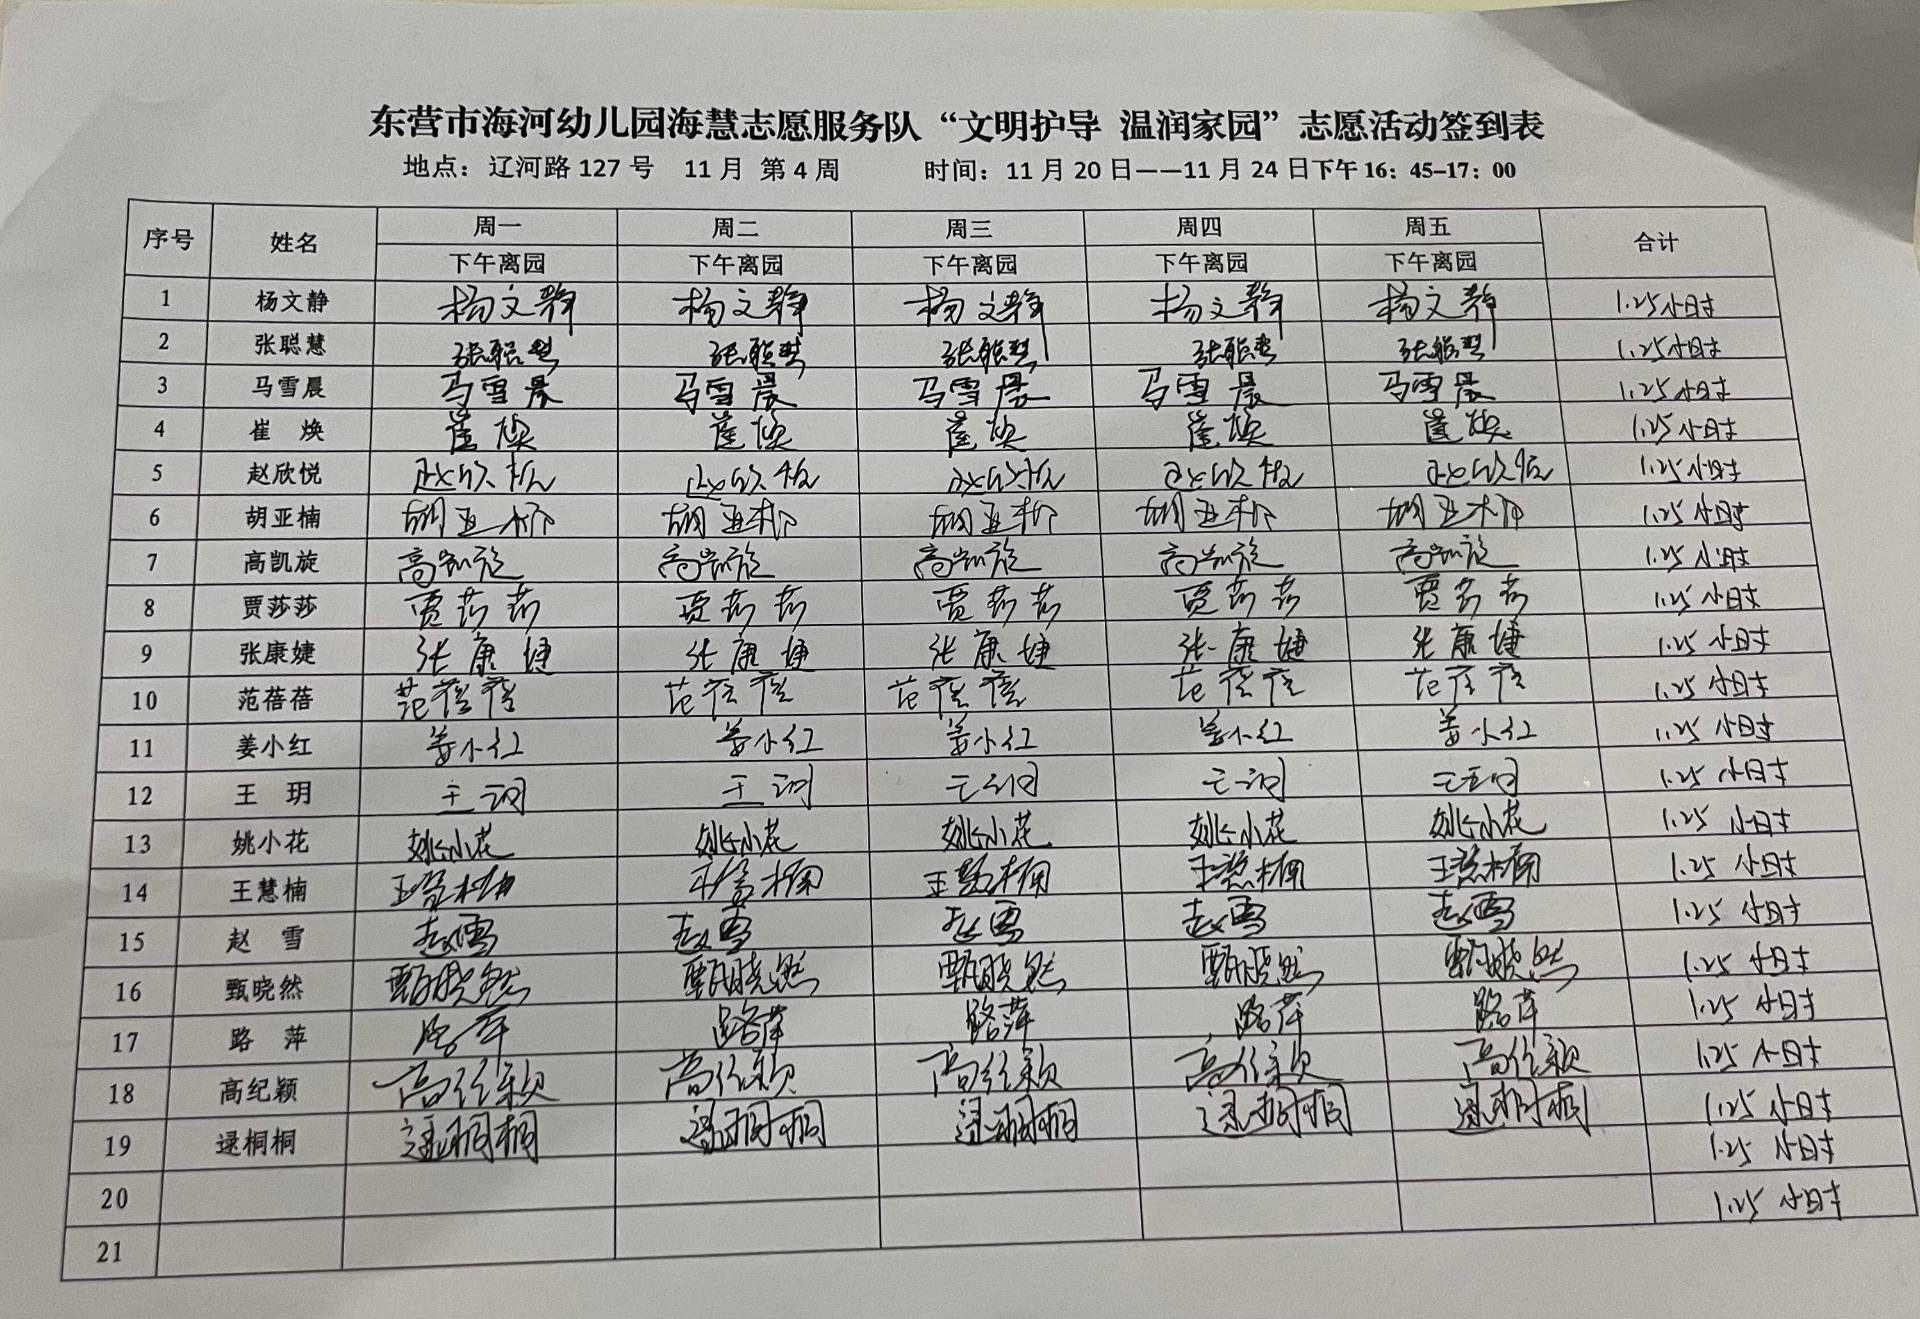 东营市海河幼儿园海慧志愿服务队“文明护导 温润家园”志愿活动签到表
地点：辽河路 127 号 11 月 第 4 周 时间：11 月 20 日——11 月 24 日下午 16：45–17：00
序号 姓名 周一 周二 周三 周四 周五 合计
下午离园 下午离园 下午离园 下午离园 下午离园
1 杨文静 杨文静 杨文静 杨文静 杨文静 杨文静 1.25小时
2 张聪慧 张聪慧 张聪慧 张聪慧 张聪慧 张聪慧 1.25小时
3 马雪晨 马雪晨 马雪晨 马雪晨 马雪晨 马雪晨 1.25小时
4 崔 焕 崔焕 崔焕 崔焕 崔焕 崔焕 1.25小时
5 赵欣悦 赵欣悦 赵欣悦 赵欣悦 赵欣悦 赵欣悦 1.25小时
6 胡亚楠 胡亚楠 胡亚楠 胡亚楠 胡亚楠 胡亚楠 1.25小时
7 高凯旋 高凯旋 高凯旋 高凯旋 高凯旋 高凯旋 1.25小时
8 贾莎莎 贾莎莎 贾莎莎 贾莎莎 贾莎莎 贾莎莎 1.25小时
9 张康婕 张康婕 张康婕 张康婕 张康婕 张康婕 1.25小时
10 范蓓蓓 范蓓蓓 范蓓蓓 范蓓蓓 范蓓蓓 范蓓蓓 1.25小时
11 姜小红 姜小红 姜小红 姜小红 姜小红 姜小红 1.25小时
12 王 玥 王玥 王玥 王玥 王玥 王玥 1.25小时
13 姚小花 姚小花 姚小花 姚小花 姚小花 姚小花 1.25小时
14 王慧楠 王慧楠 王慧楠 王慧楠 王慧楠 王慧楠 1.25小时
15 赵 雪 赵雪 赵雪 赵雪 赵雪 赵雪 1.25小时
16 甄晓然 甄晓然 甄晓然 甄晓然 甄晓然 甄晓然 1.25小时
17 路 萍 路萍 路萍 路萍 路萍 路萍 1.25小时
18 高纪颖 高纪颖 高纪颖 高纪颖 高纪颖 高纪颖 1.25小时
19 逯桐桐 逯桐桐 逯桐桐 逯桐桐 逯桐桐 逯桐桐 1.25小时
20 1.25小时
21 1.25小时